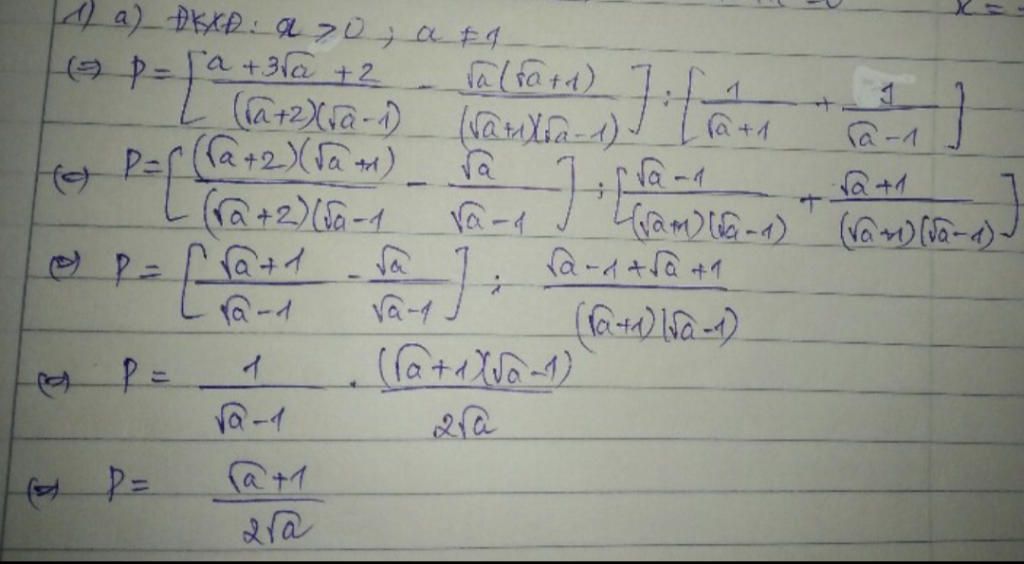 x =
1) a) ĐKXĐ: a > 0 ; a ≠ 1
(=) P = [ (a + 3√a + 2)/((√a+2)(√a-1)) - (√a(√a+1))/((√a+1)(√a-1)) ] : [ 1/(√a+1) + 1/(√a-1) ]
(=) P = [ ((√a+2)(√a+1))/((√a+2)(√a-1) - √a/(√a-1) ] : [ (√a-1)/((√a+1)(√a-1)) + (√a+1)/((√a+1)(√a-1)) ]
(=) P = [ (√a+1)/(√a-1) - √a/(√a-1) ] : (√a-1+√a+1)/((√a+1)(√a-1))
(=) P = 1/(√a-1) . ((√a+1)(√a-1))/(2√a)
(=) P = (√a+1)/(2√a)